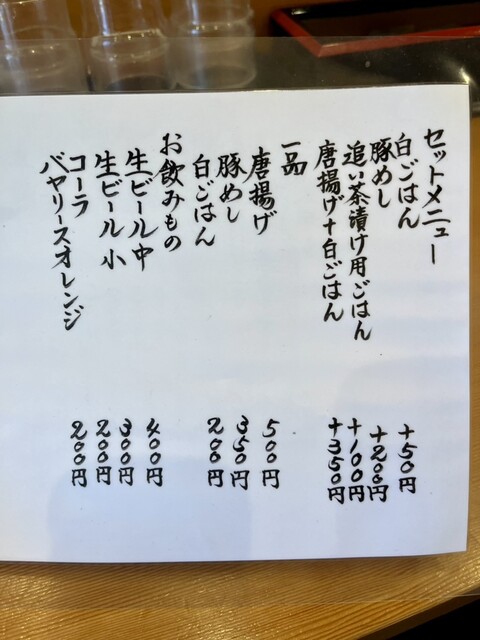 セットメニュー
白ごはん +50円
豚めし +200円
追い茶漬け用ごはん +100円
唐揚げ+白ごはん +350円
一品
唐揚げ 500円
豚めし 350円
白ごはん 200円
お飲みもの
生ビール中 400円
生ビール小 300円
コーラ 200円
バヤリースオレンジ 200円